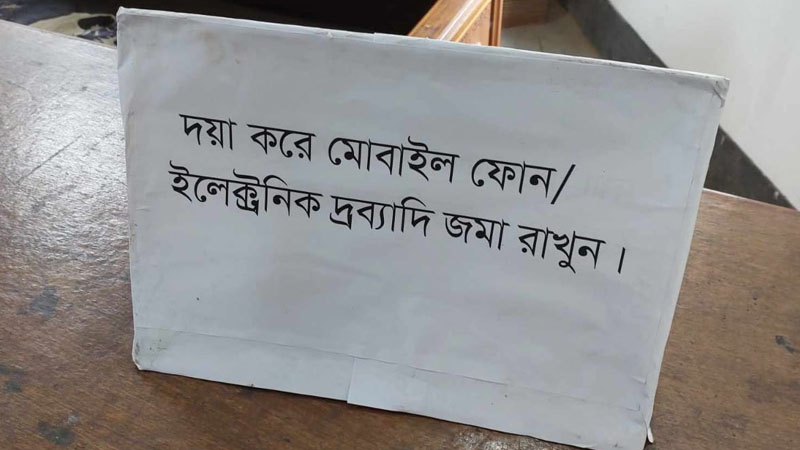 দয়া করে মোবাইল ফোন/
ইলেক্ট্রনিক দ্রব্যাদি জমা রাখুন ।